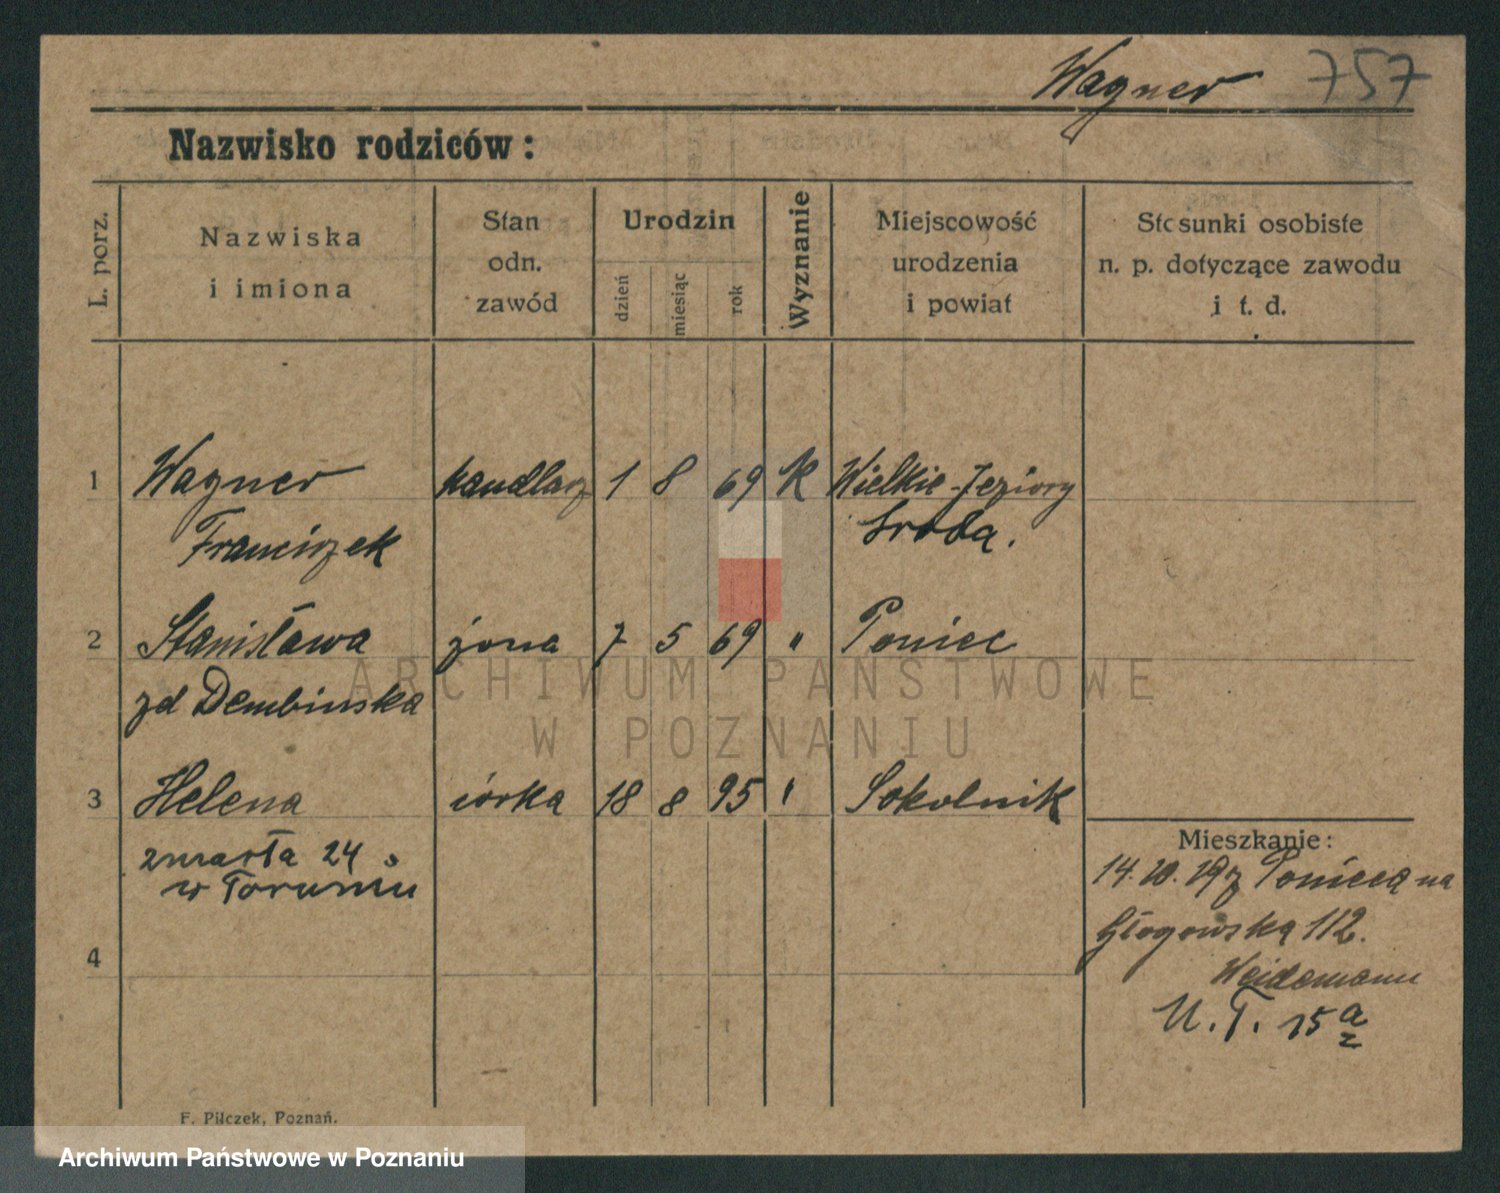 Wagner 757
Nazwisko rodziców:
L. porz.
Nazwiska
i imiona
Stan
odn.
zawód
Urodzin
dzień
miesiąc
rok
Wyznanie
Miejscowość
urodzenia
i powiat
Stosunki osobiste
n. p. dotyczące zawodu
i t. d.
1 Wagner handlarz 1 8 69 K Wielkie-Jeziory
Franciszek Środa.
2 Stanisława żona 7 5 69 " Poniec
zd Dembinska
3 Helena córka 18 8 95 " Sokolnik
zmarła 24
w Toruniu
4
Mieszkanie:
14. 10. 19 z Poniecą na
Głogowska 112.
Weidemann
U. T. 15 a
F. Pilczek, Poznań.
ARCHIWUM PAŃSTWOWE
W POZNANIU
Archiwum Państwowe w Poznaniu